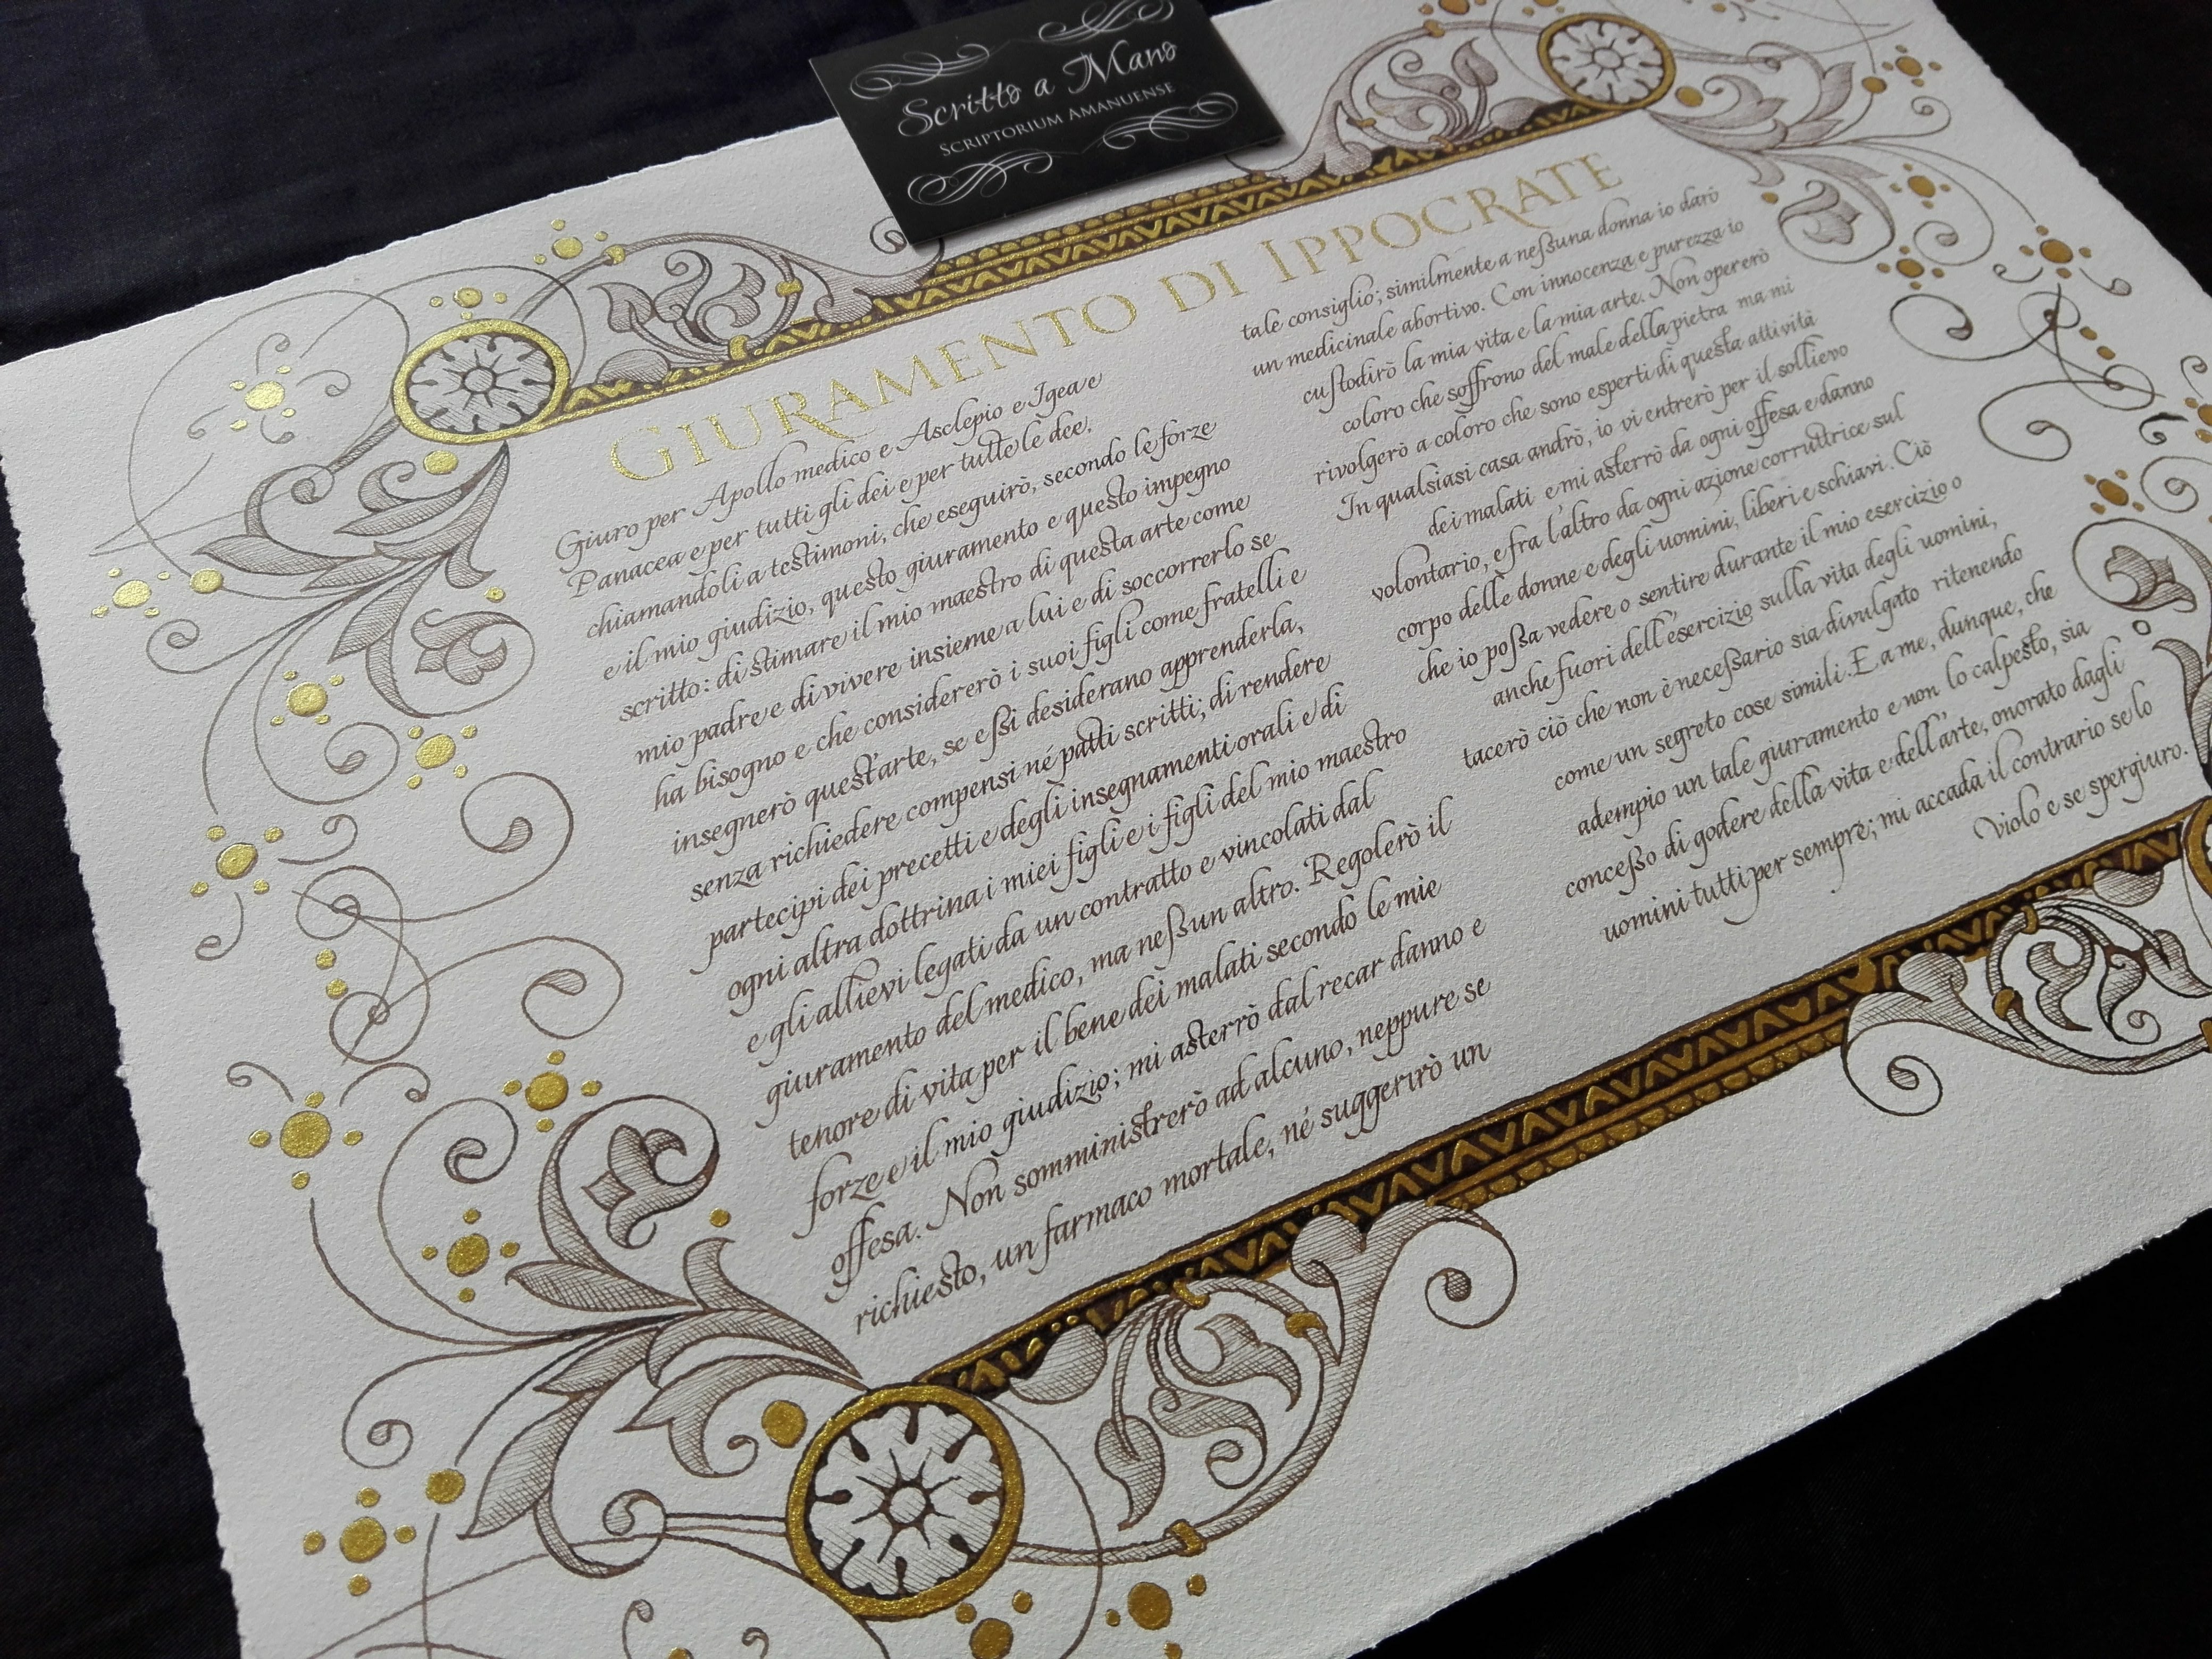 Scritto a Mano
Scriptorium Amanuense
Giuramento di Ippocrate
Giuro per Apollo medico e Asclepio e Igea e
Panacea e per tutti gli dei e per tutte le dee,
chiamandoli a testimoni, che eseguirò, secondo le forze
e il mio giudizio, questo giuramento e questo impegno
scritto: di stimare il mio maestro di questa arte come
mio padre e di vivere insieme a lui e di soccorrerlo se
ha bisogno e che considererò i suoi figli come fratelli e
insegnerò quest'arte, se eſsi desiderano apprenderla,
senza richiedere compensi né patti scritti; di rendere
partecipi dei precetti e degli insegnamenti orali e di
ogni altra dottrina i miei figli e i figli del mio maestro
e gli allievi legati da un contratto e vincolati dal
giuramento del medico, ma neſsun altro. Regolerò il
tenore di vita per il bene dei malati secondo le mie
forze e il mio giudizio; mi asterrò dal recar danno e
offesa. Non somministrerò ad alcuno, neppure se
richiesto, un farmaco mortale, né suggerirò un
tale consiglio; similmente a neſsuna donna io darò
un medicinale abortivo. Con innocenza e purezza io
cuſtodirò la mia vita e la mia arte. Non opererò
coloro che soffrono del male della pietra ma mi
rivolgerò a coloro che sono esperti di questa attività
In qualsiasi casa andrò, io vi entrerò per il sollievo
dei malati e mi asterrò da ogni offesa e danno
volontario, e fra l'altro da ogni azione corruttrice sul
corpo delle donne e degli uomini, liberi e schiavi. Ciò
che io poſsa vedere o sentire durante il mio esercizio o
anche fuori dell'esercizio sulla vita degli uomini,
tacerò ciò che non è neceſsario sia divulgato ritenendo
come un segreto cose simili. E a me, dunque, che
adempio un tale giuramento e non lo calpesto, sia
conceſso di godere della vita e dell'arte, onorato dagli
uomini tutti per sempre; mi accada il contrario se lo
violo e se spergiuro.